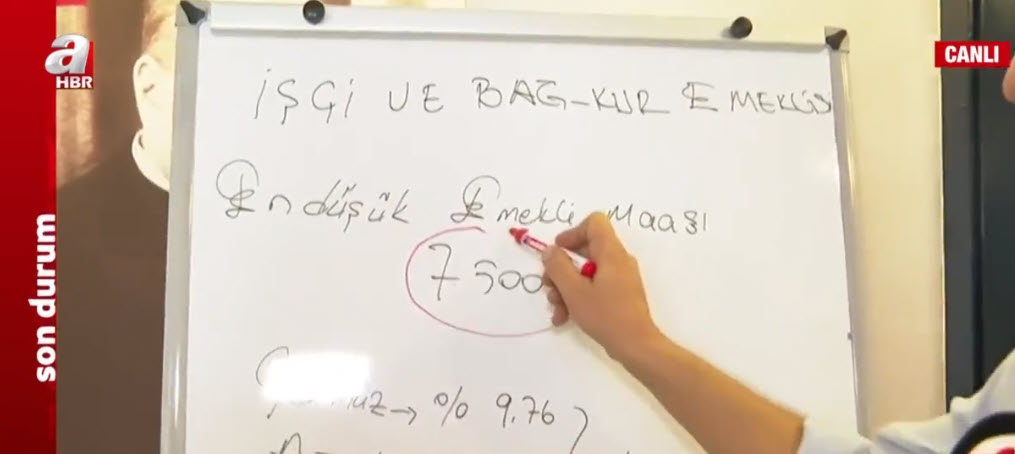 a
HBR
CANLI
son durum
İŞÇİ VE BAĞ-KUR EMEKLİSİ
En düşük Emekli Maaşı
7500
→ % 9.76